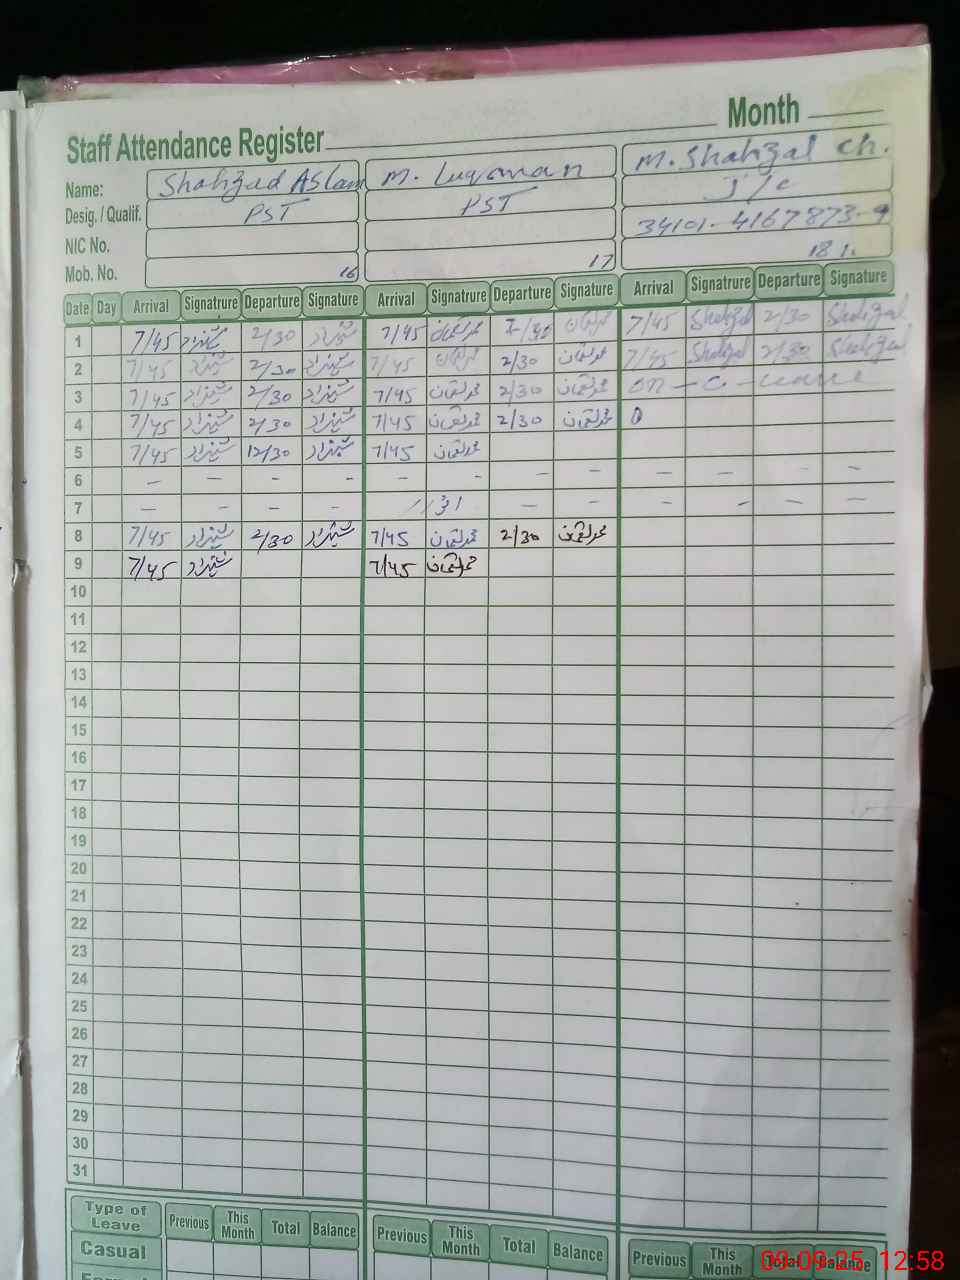 Month
Staff Attendance Register
Name: Shahzad Aslam M. Luqman M. Shahzal ch.
Desig. / Qualif. PST PST J/C
NIC No. 34101-4167873-9
Mob. No. 16 17 18
Date Day Arrival Signatrure Departure Signature Arrival Signatrure Departure Signature Arrival Signatrure Departure Signature
1 7/45 شہزاد 2/30 شہزاد 7/45 محمد لقمان 2/30 محمد لقمان 7/45 Shahzal 2/30 Shahzal
2 7/45 شہزاد 2/30 شہزاد 7/45 محمد لقمان 2/30 محمد لقمان 7/45 Shahzal 2/30 Shahzal
3 7/45 شہزاد 2/30 شہزاد 7/45 محمد لقمان 2/30 محمد لقمان on - C - leave
4 7/45 شہزاد 2/30 شہزاد 7/45 محمد لقمان 2/30 محمد لقمان
5 7/45 شہزاد 12/30 شہزاد 7/45 محمد لقمان
6 - - - - - - - - - - - -
7 - - - - - - - - - -
8 7/45 شہزاد 2/30 شہزاد 7/45 محمد لقمان 2/30 محمد لقمان
9 7/45 شہزاد 7/45 محمد لقمان
10
11
12
13
14
15
16
17
18
19
20
21
22
23
24
25
26
27
28
29
30
31
Type of Leave Previous This Month Total Balance Previous This Month Total Balance Previous This Month Total Balance
Casual
09-09-25 12:58